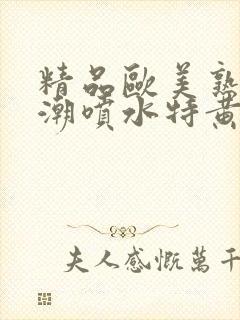 精品歐美熟
潮噴水特黃
夫人感慨萬千